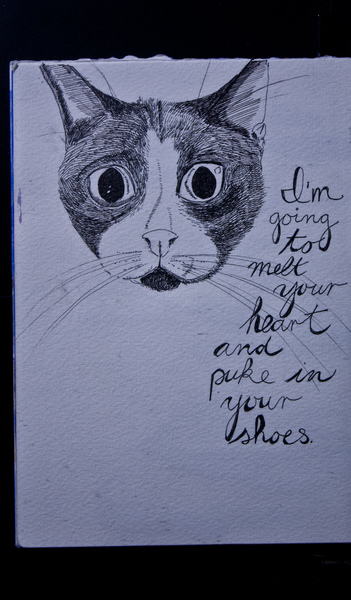 I'm
going
to
melt
your
heart
and
puke in
your
shoes.